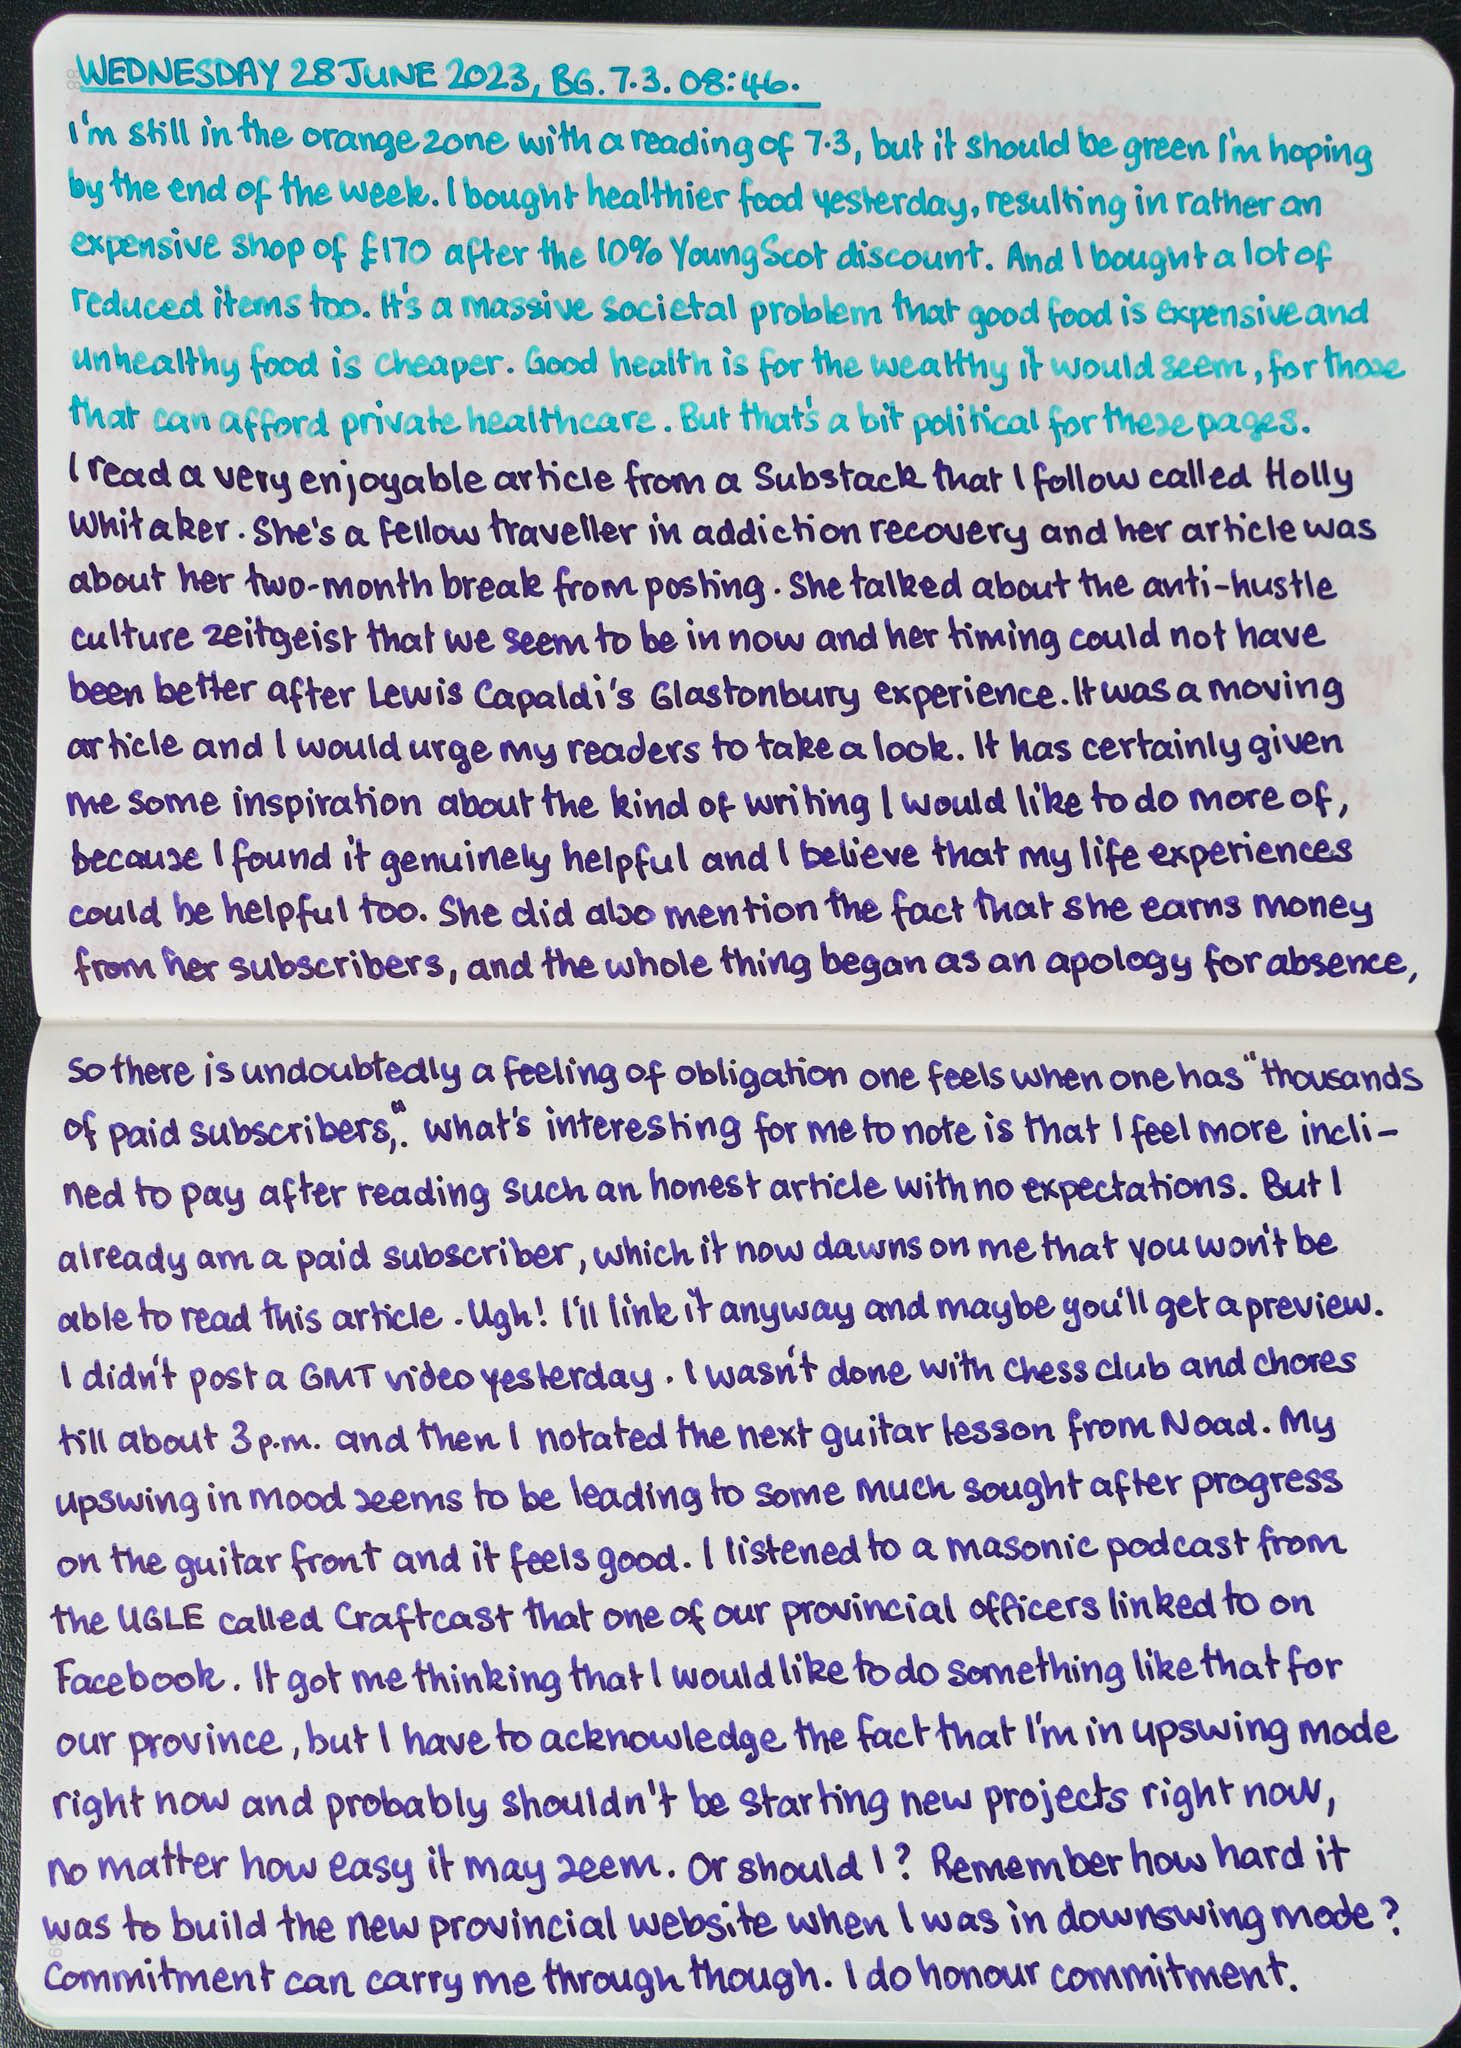 WEDNESDAY 28 JUNE 2023, BG. 7.3. 08:46.
I'm still in the orange zone with a reading of 7.3, but it should be green I'm hoping
by the end of the week. I bought healthier food yesterday, resulting in rather an
expensive shop of £170 after the 10% Young Scot discount. And I bought a lot of
reduced items too. It's a massive societal problem that good food is expensive and
unhealthy food is cheaper. Good health is for the wealthy it would seem, for those
that can afford private healthcare. But that's a bit political for these pages.
I read a very enjoyable article from a Substack that I follow called Holly
Whitaker. She's a fellow traveller in addiction recovery and her article was
about her two-month break from posting. She talked about the anti-hustle
culture zeitgeist that we seem to be in now and her timing could not have
been better after Lewis Capaldi's Glastonbury experience. It was a moving
article and I would urge my readers to take a look. It has certainly given
me some inspiration about the kind of writing I would like to do more of,
because I found it genuinely helpful and I believe that my life experiences
could be helpful too. She did also mention the fact that she earns money
from her subscribers, and the whole thing began as an apology for absence,
So there is undoubtedly a feeling of obligation one feels when one has "thousands
of paid subscribers,". What's interesting for me to note is that I feel more incli-
ned to pay after reading such an honest article with no expectations. But I
already am a paid subscriber, which it now dawns on me that you won't be
able to read this article. Ugh! I'll link it anyway and maybe you'll get a preview.
I didn't post a GMT video yesterday. I wasn't done with chess club and chores
till about 3p.m. and then I notated the next guitar lesson from Noad. My
upswing in mood seems to be leading to some much sought after progress
on the guitar front and it feels good. I listened to a masonic podcast from
the UGLE called Craftcast that one of our provincial officers linked to on
Facebook. It got me thinking that I would like to do something like that for
our province, but I have to acknowledge the fact that I'm in upswing mode
right now and probably shouldn't be starting new projects right now,
no matter how easy it may seem. Or should I? Remember how hard it
was to build the new provincial website when I was in downswing mode?
Commitment can carry me through though. I do honour commitment.